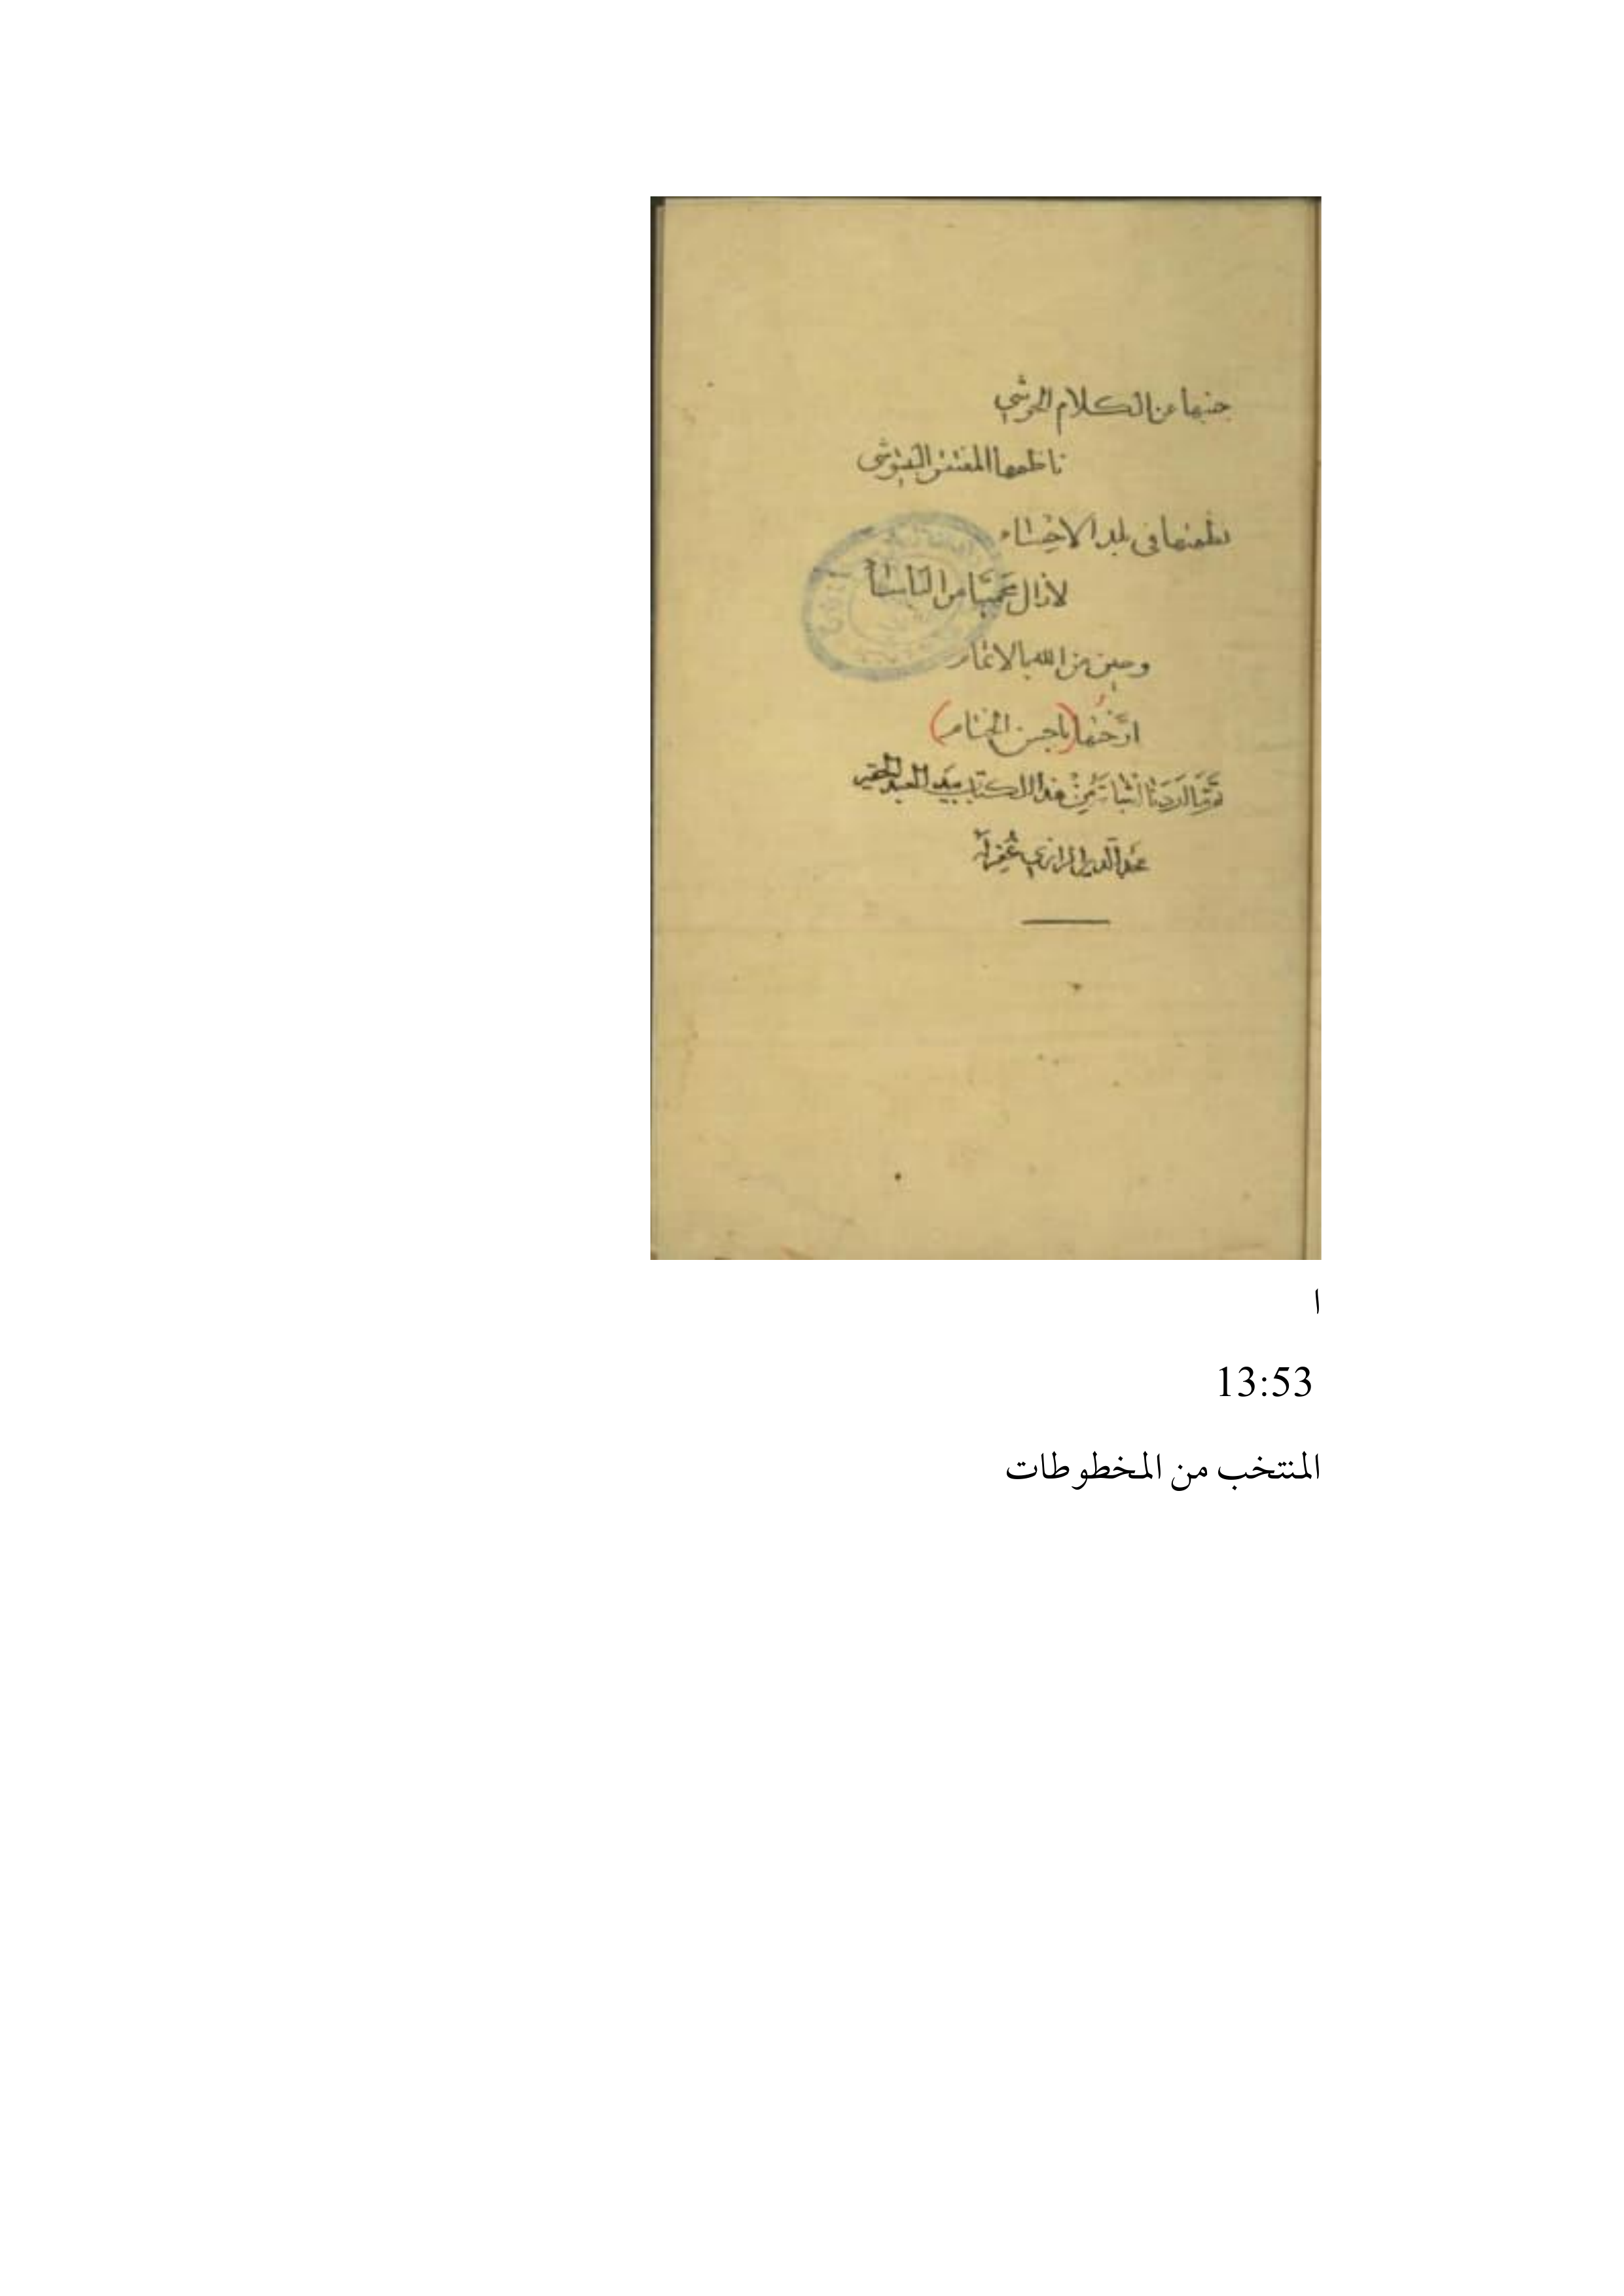 جنبها عن الكلام الحوشي
ناظمها المفتقر البيتوشي
نظمتها في بلد الاحساء
لازال محميا من البأساء
وحين من الله بالاتمام
ارختها (باحسن الختام)
تم ما اردنا اثباته من هذا الكتاب بيد العبد الحقير
غفر له
ا
13:53
المنتخب من المخطوطات